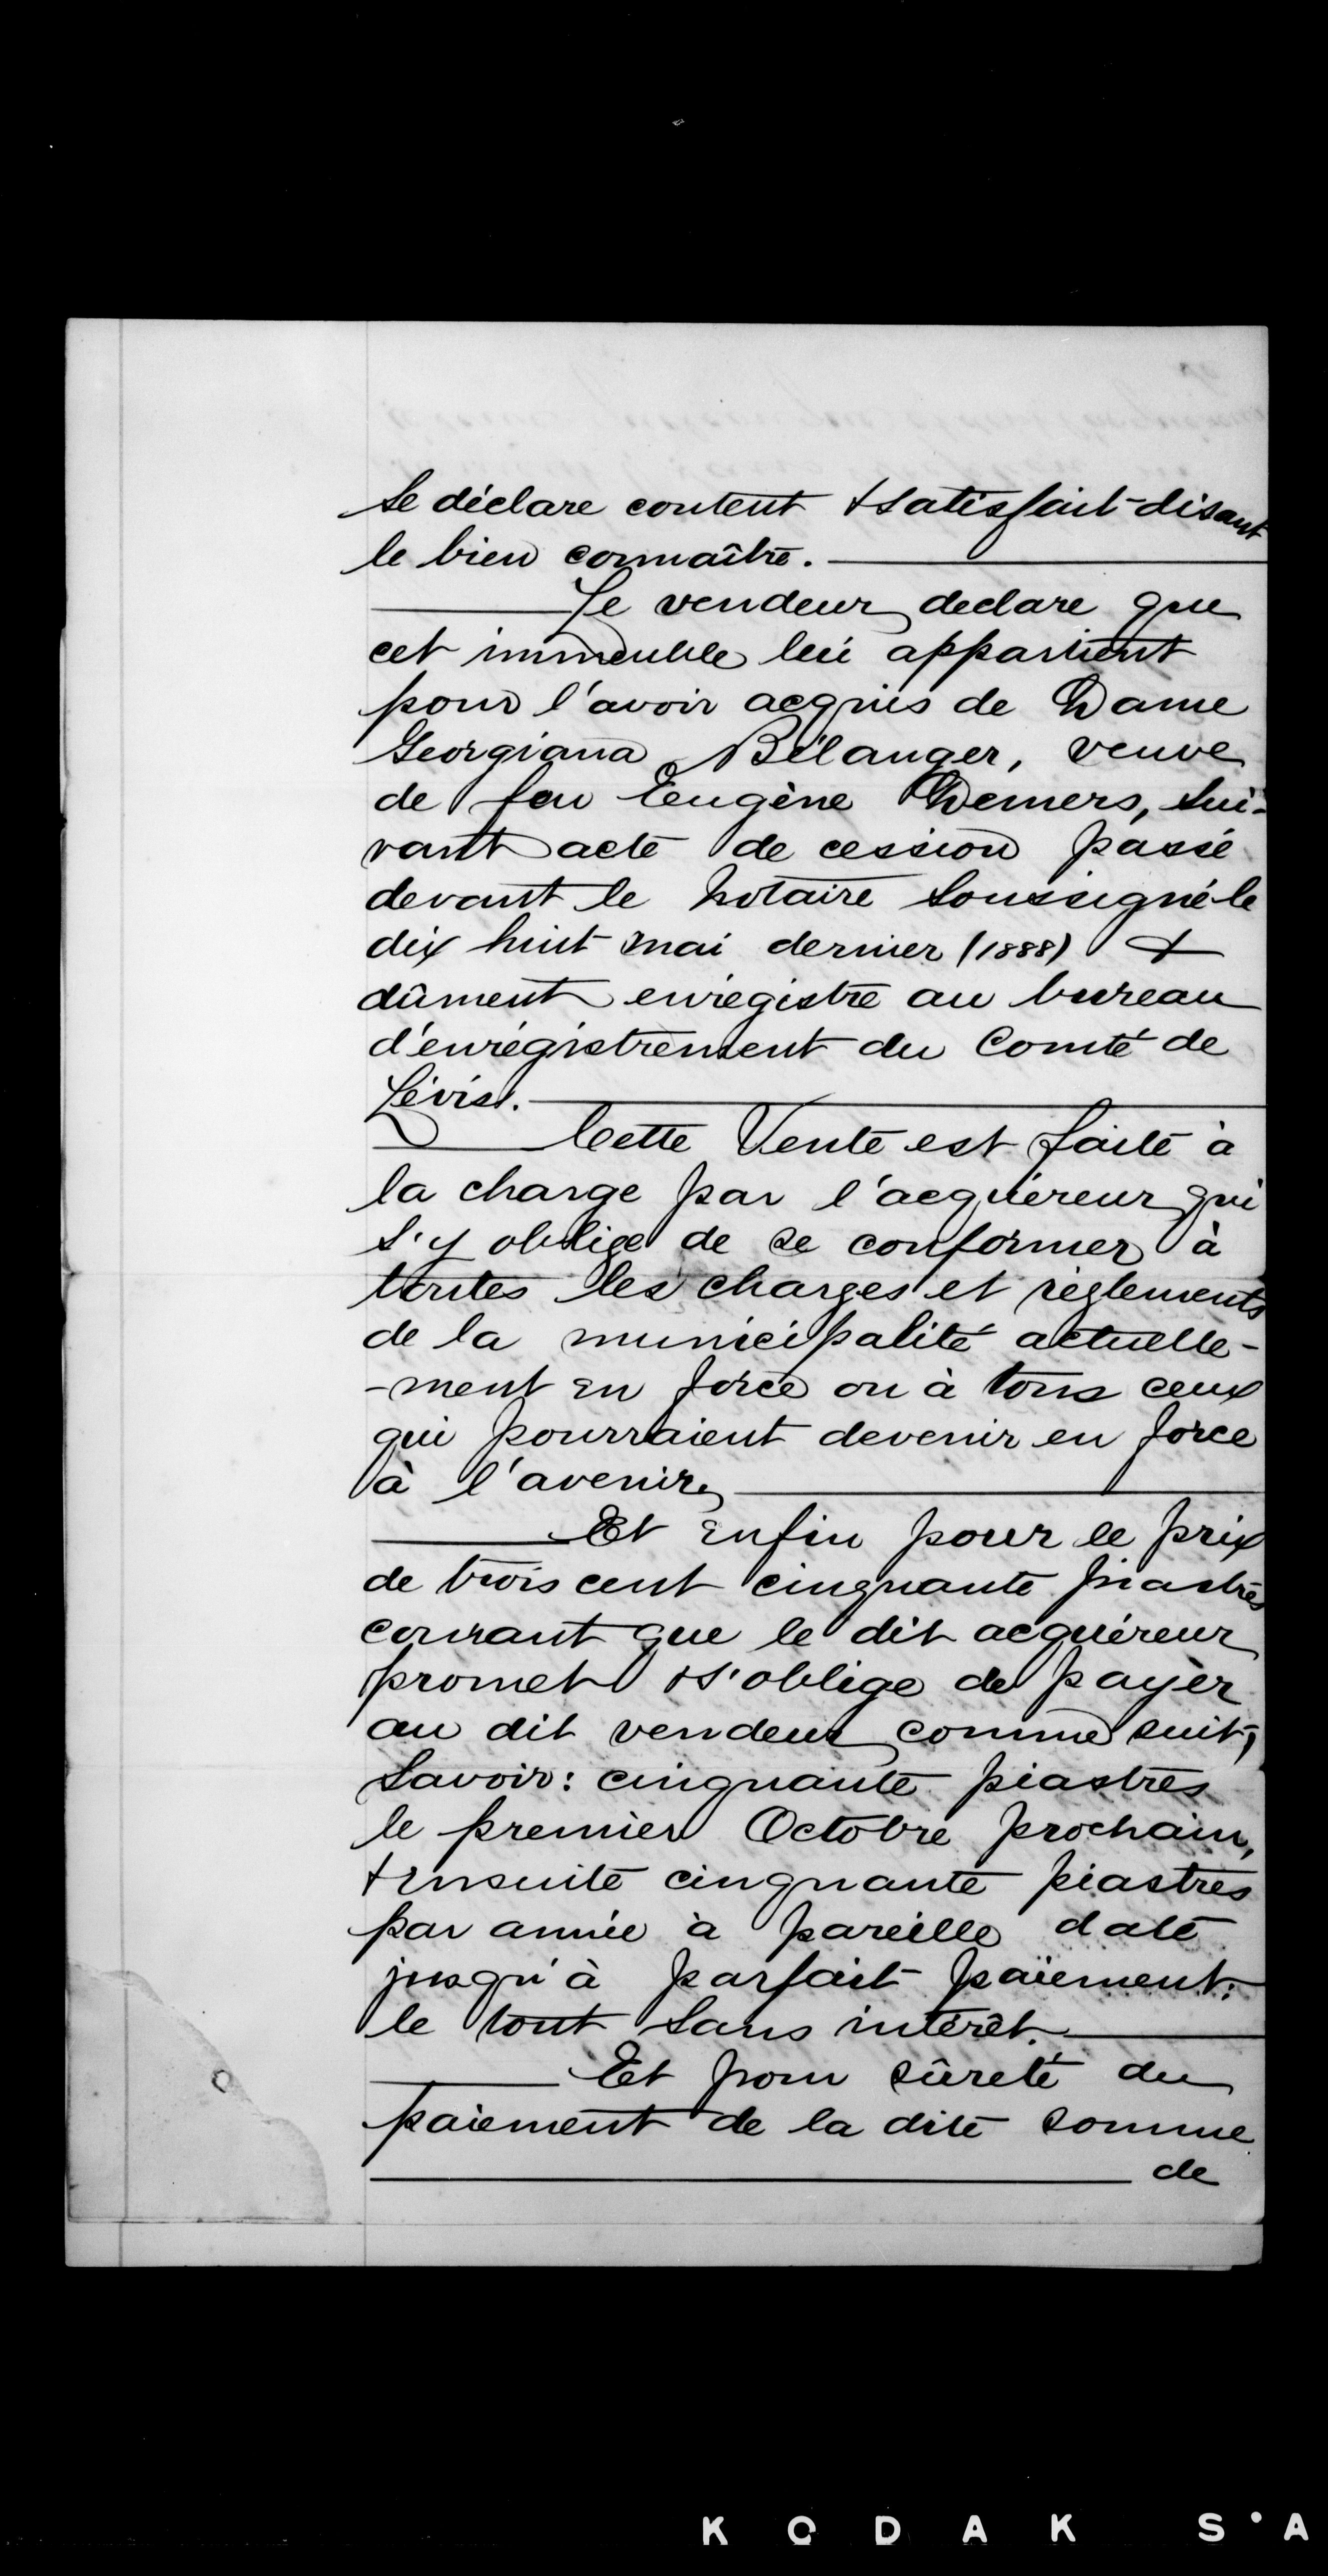 se déclare content & satisfait disant
le bien connaître.
Le vendeur declare que
cet immeuble lui appartient
pour l'avoir acquis de Dame
Georgiana Bélanger, veuve
de feu Eugène Demers, sui-
vant acte de cession passé
devant le notaire soussigné le
dix huit mai dernier (1888) &
dûment enrégistré au bureau
d'enrégistrement du Comté de
Lévis.
Cette Vente est faite à
la charge par l'acquéreur qui
s'y oblige de se conformer à
toutes les charges et règlements
de la municipalité actuelle-
-ment en force ou à tous ceux
qui pourraient devenir en force
à l'avenir,
Et enfin pour le prix
de trois cent cinquante piastres
courant que le dit acquéreur
promet & s'oblige de payer
au dit vendeur comme suit,
savoir: cinquante piastres
le premier Octobre prochain,
& ensuite cinquante piastres
par année à pareille date
jusqu'à parfait paiement:
le tout sans intérêt.
Et pour sûreté du
paiement de la dite somme
de
KODAK S•A